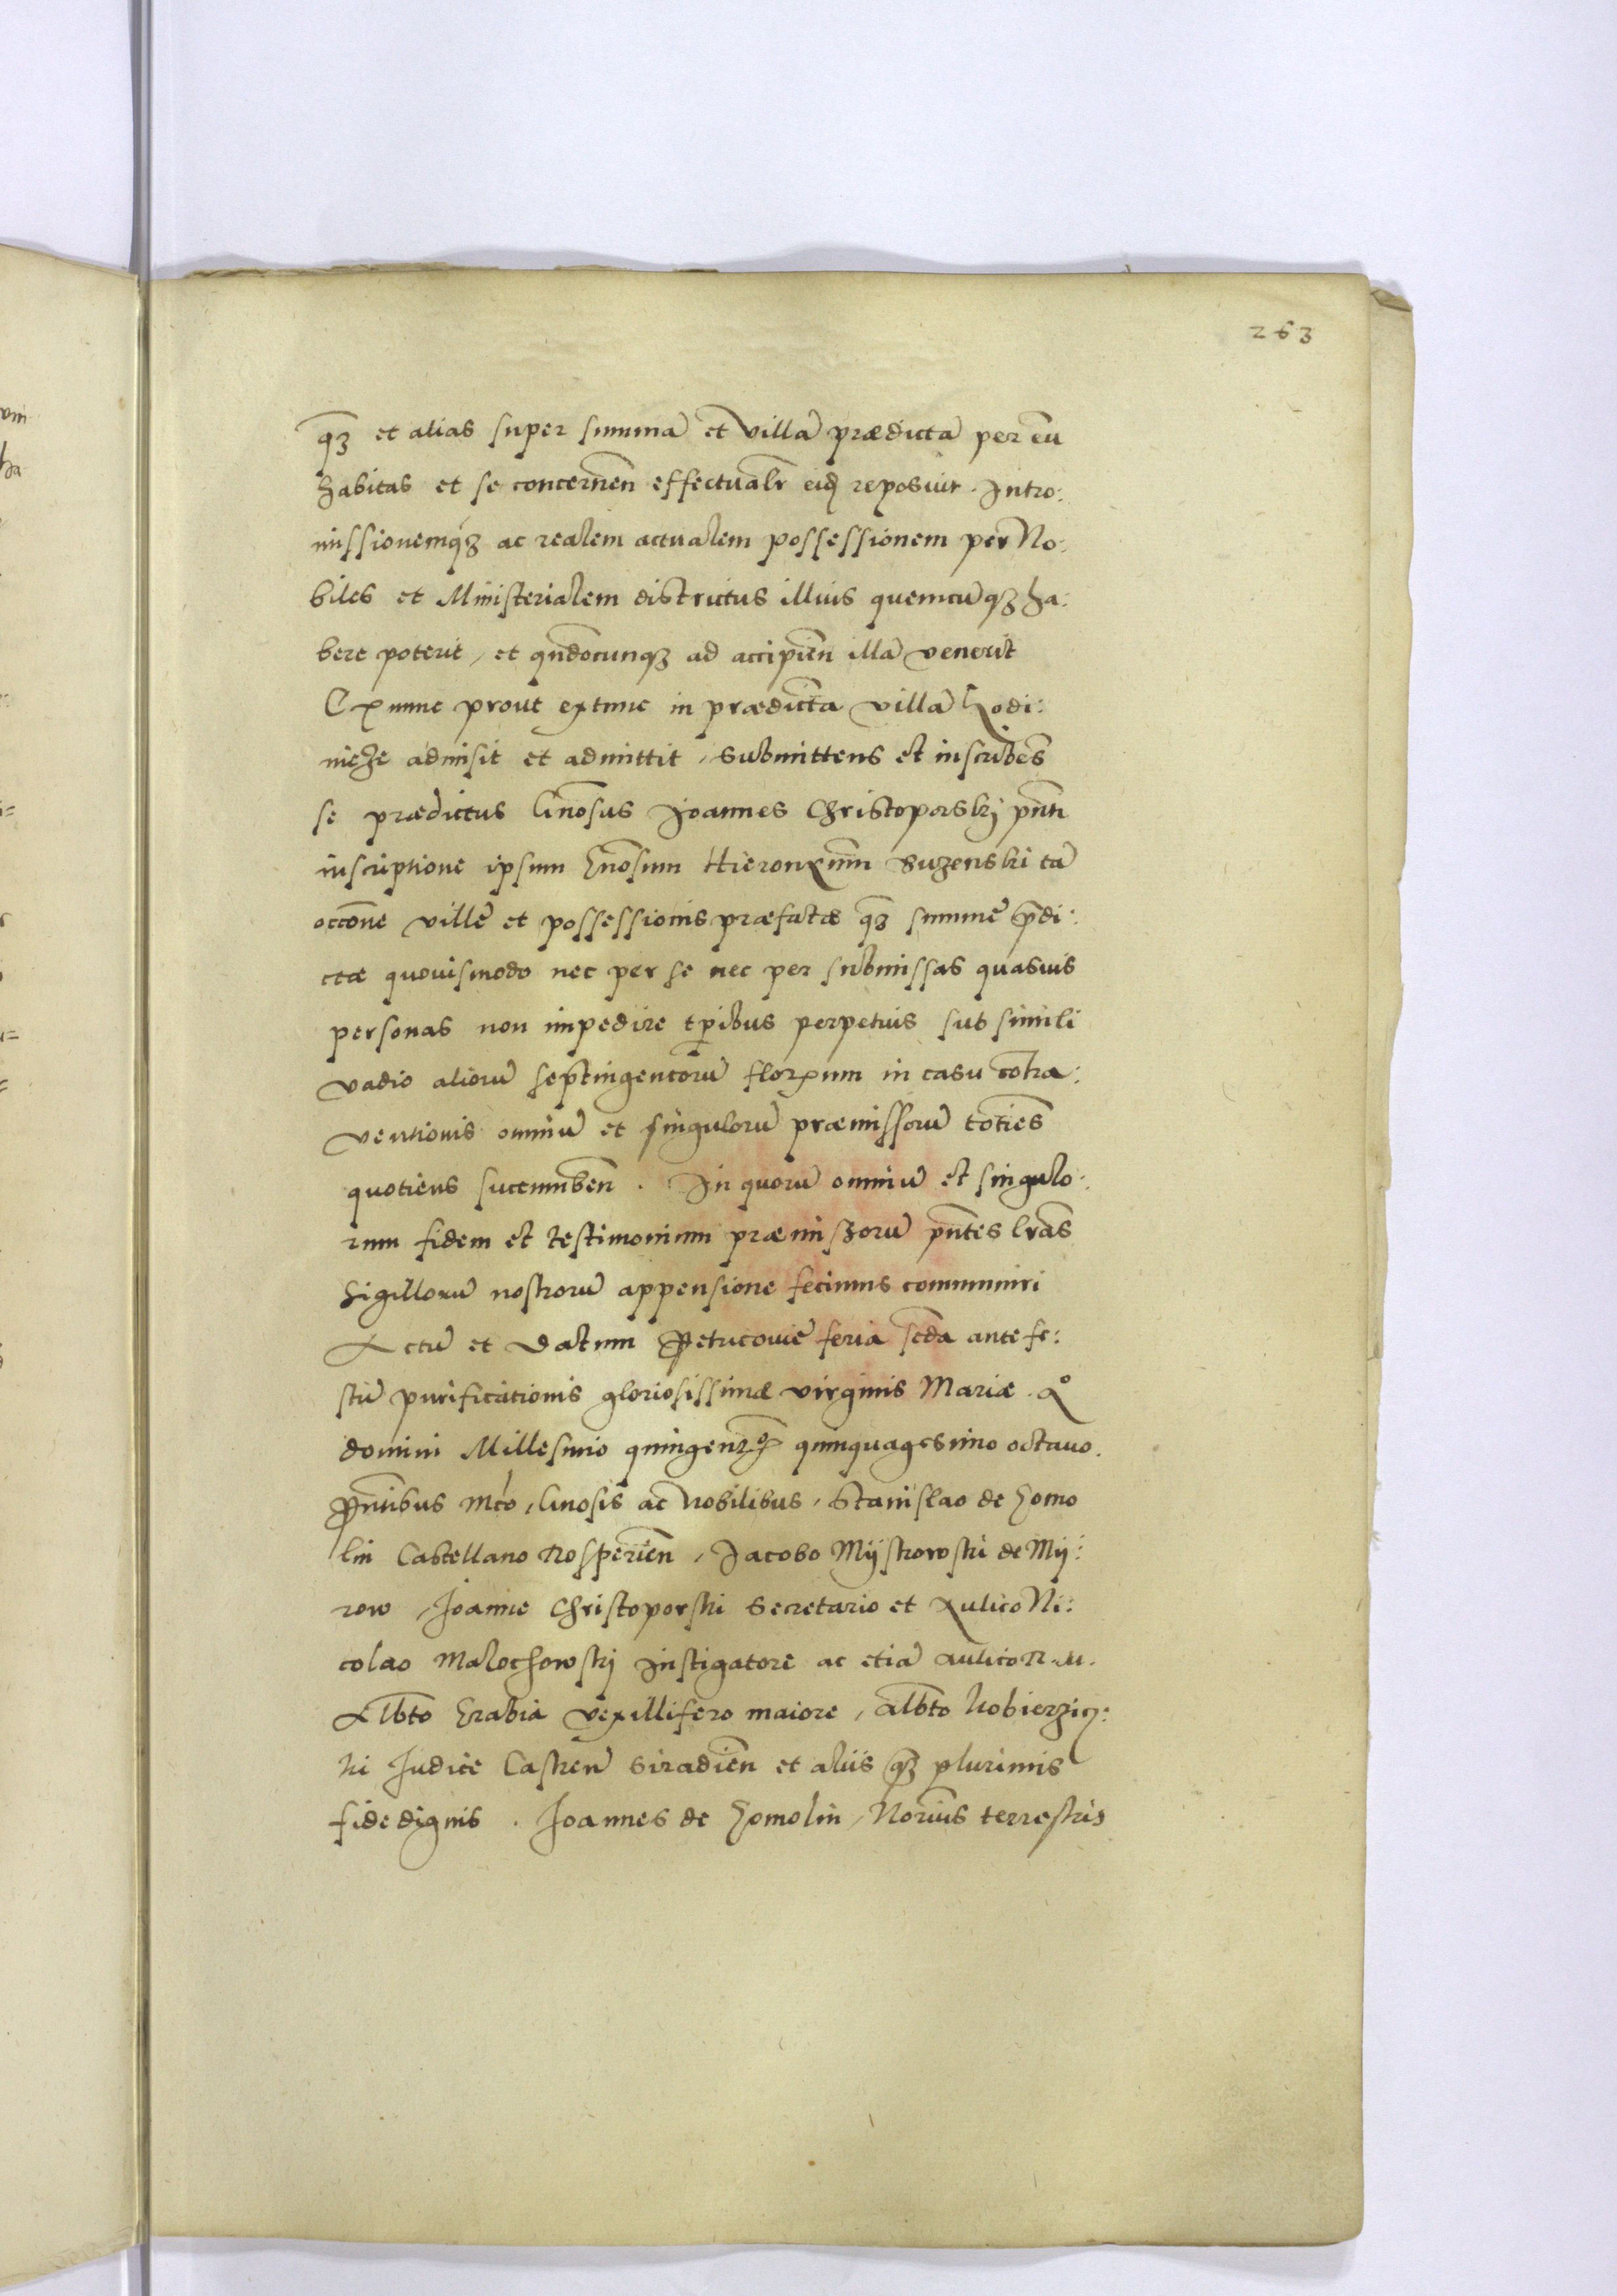 263
qꝫ et alias super summā et villā prædictā per eū
habitas et se concernen̄ effectualr̄ eidꝫ reposuit. Intro:
missionemqꝫ ac realem actualem possessionem per No:
biles et Ministerialem districtus illius quemcūqꝫ ha:
bere poterit, et qn̄docunqꝫ ad accipien̄ illā venerit
Exnunc prout extunc in prædictā villā Lodi:
nicze admisit et admittit, submittens et inscribēs
se prædictus Gn̄osus Joannes Christoporskij pn̄ti
inscriptione ipsum Gn̄osum Hieronymū Buzenski tā
occōne villę et possessionis præfatæ qꝫ summę p̄di:
ctæ quouismodo nec per se nec per submissas quasuis
personas non impedire tp̄ibus perpetuis sub simili
vadio aliorū septingentorū florenum in casu cōtra:
ventionis omniū et singulorū præmissorū toties
quotiens succumben̄. In quorū omniū et singulo:
rum fidem et testimonium præmiszorū pn̄tes lr̄as
Sigillorū nostrorū appensione fecimus communiri
Actū et Datum Petricouię feria scd̄a ante fe:
stū purificationis gloriosissimæ virginis Mariæ. Aº
domini Millesimo quingen̄mo quinquagesimo octauo.
Pn̄tibus Mcō, Gn̄osis ac Nobilibus, Stanislao de Homo
lin Castellano Rosperien̄, Jacobo Mijstrowski de Mij:
row, Joanne Christoporski Secretario et Aulico Ni:
colao Malochowskj Instigatore ac etiā aulico R. M.
Albto Grabia vexillifero maiore, Albto Kobierzic:
ki Judice Castren̄ Siradien̄ et aliis qꝫ plurimis
fidedignis. Joannes de Homolin, Nor̄ius terrestris